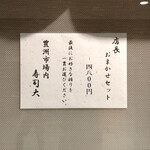 店長
おまかせセット
四八〇〇円
最後にお好きな握りを
一貫お選びください。
豊洲市場内
寿司大